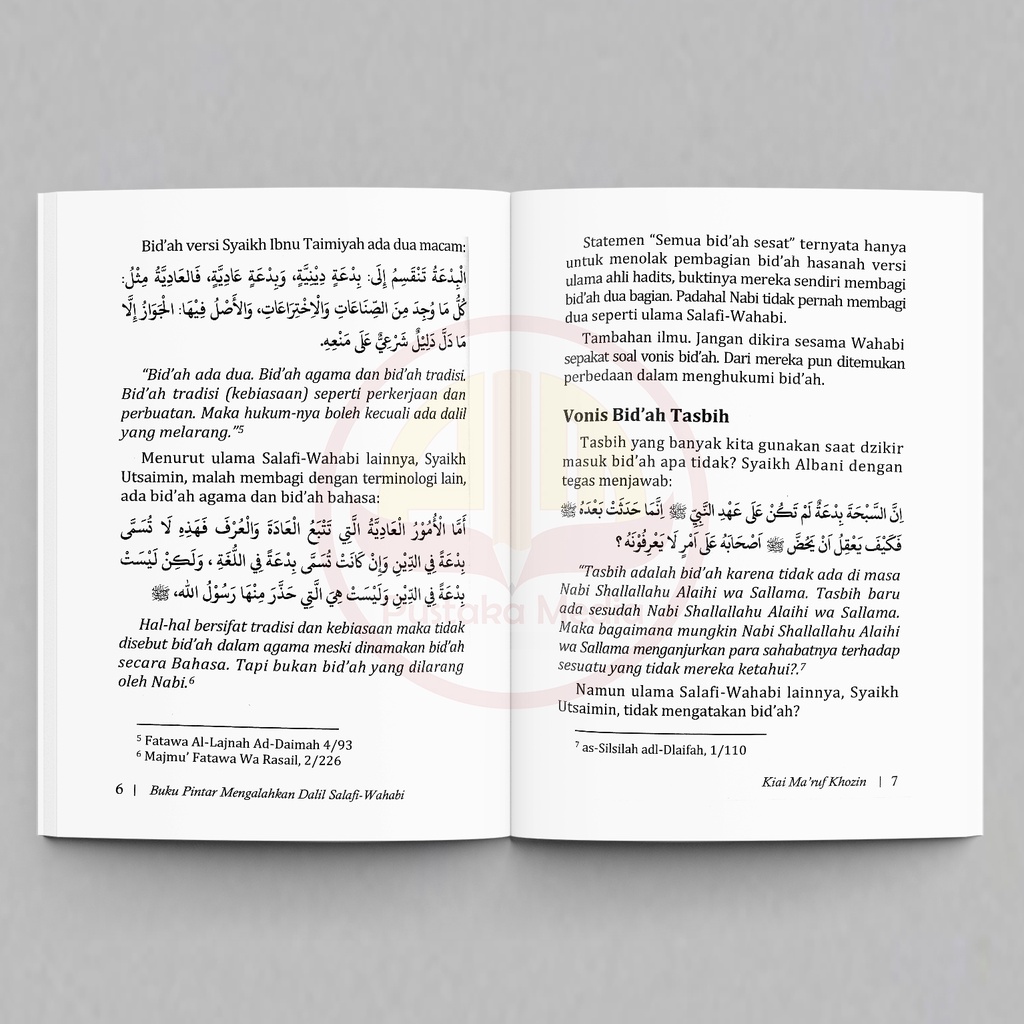 Bid'ah versi Syaikh Ibnu Taimiyah ada dua macam:
الْبِدْعَةُ تَنْقَسِمُ إِلَى: بِدْعَةٍ دِيْنِيَّةٍ، وَبِدْعَةٍ عَادِيَّةٍ، فَالعَادِيَّةُ مِثْلُ:
كُلُّ مَا وُجِدَ مِنَ الصِّنَاعَاتِ وَالْاِخْتِرَاعَاتِ، وَالأَصْلُ فِيْهَا: الْجَوَازُ إِلَّا
مَا دَلَّ دَلِيْلٌ شَرْعِيٌّ عَلَى مَنْعِهِ.
"Bid'ah ada dua. Bid'ah agama dan bid'ah tradisi.
Bid'ah tradisi (kebiasaan) seperti perkerjaan dan
perbuatan. Maka hukum-nya boleh kecuali ada dalil
yang melarang."5
Menurut ulama Salafi-Wahabi lainnya, Syaikh
Utsaimin, malah membagi dengan terminologi lain,
ada bid'ah agama dan bid'ah bahasa:
أَمَّا الْأُمُوْرُ الْعَادِيَّةُ الَّتِي تَتْبَعُ الْعَادَةَ وَالْعُرْفَ فَهَذِهِ لَا تُسَمَّى
بِدْعَةً فِي الدِّيْنِ وَإِنْ كَانَتْ تُسَمَّى بِدْعَةً فِي اللُّغَةِ ، وَلَكِنْ لَيْسَتْ
بِدْعَةً فِي الدِّيْنِ وَلَيْسَتْ هِيَ الَّتِي حَذَّرَ مِنْهَا رَسُوْلُ الله، ﷺ
Hal-hal bersifat tradisi dan kebiasaan maka tidak
disebut bid'ah dalam agama meski dinamakan bid'ah
secara Bahasa. Tapi bukan bid'ah yang dilarang
oleh Nabi.6
5 Fatawa Al-Lajnah Ad-Daimah 4/93
6 Majmu' Fatawa Wa Rasail, 2/226
6 | Buku Pintar Mengalahkan Dalil Salafi-Wahabi
Statemen "Semua bid'ah sesat" ternyata hanya
untuk menolak pembagian bid'ah hasanah versi
ulama ahli hadits, buktinya mereka sendiri membagi
bid'ah dua bagian. Padahal Nabi tidak pernah membagi
dua seperti ulama Salafi-Wahabi.
Tambahan ilmu. Jangan dikira sesama Wahabi
sepakat soal vonis bid'ah. Dari mereka pun ditemukan
perbedaan dalam menghukumi bid'ah.
Vonis Bid'ah Tasbih
Tasbih yang banyak kita gunakan saat dzikir
masuk bid'ah apa tidak? Syaikh Albani dengan
tegas menjawab:
اِنَّ السَّبْحَةَ بِدْعَةٌ لَمْ تَكُنْ عَلَى عَهْدِ النَّبِيِّ ﷺ اِنَّمَا حَدَثَتْ بَعْدَهُ ﷺ
فَكَيْفَ يَعْقِلُ اَنْ يَحُضَّ ﷺ اَصْحَابَهُ عَلَى اَمْرٍ لَا يَعْرِفُوْنَهُ؟
"Tasbih adalah bid'ah karena tidak ada di masa
Nabi Shallallahu Alaihi wa Sallama. Tasbih baru
ada sesudah Nabi Shallallahu Alaihi wa Sallama.
Maka bagaimana mungkin Nabi Shallallahu Alaihi
wa Sallama menganjurkan para sahabatnya terhadap
sesuatu yang tidak mereka ketahui?.7
Namun ulama Salafi-Wahabi lainnya, Syaikh
Utsaimin, tidak mengatakan bid'ah?
7 as-Silsilah adl-Dlaifah, 1/110
Kiai Ma'ruf Khozin | 7
Pustaka Media